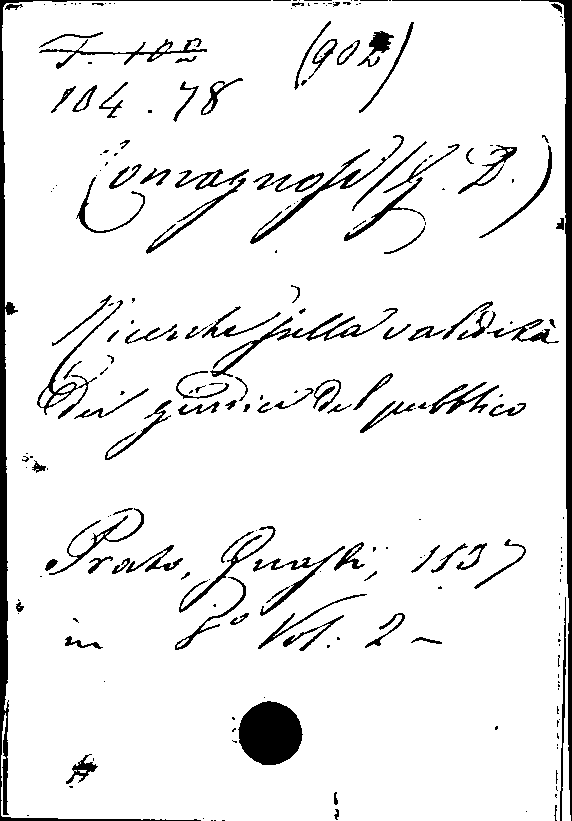 T. 102 (902)
104.78
Romagnosi (G. D.)
Ricerche sulla validità
dei giudici del pubblico
Prato, Guasti, 1837
in 8° Vol: 2 -